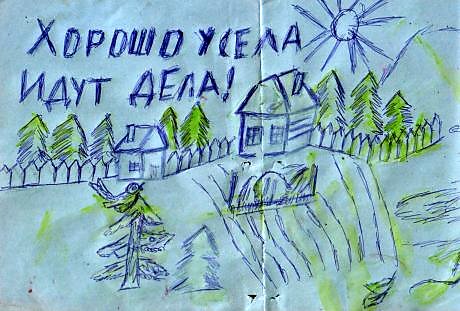 ХОРОШО У СЕЛА
ИДУТ ДЕЛА!